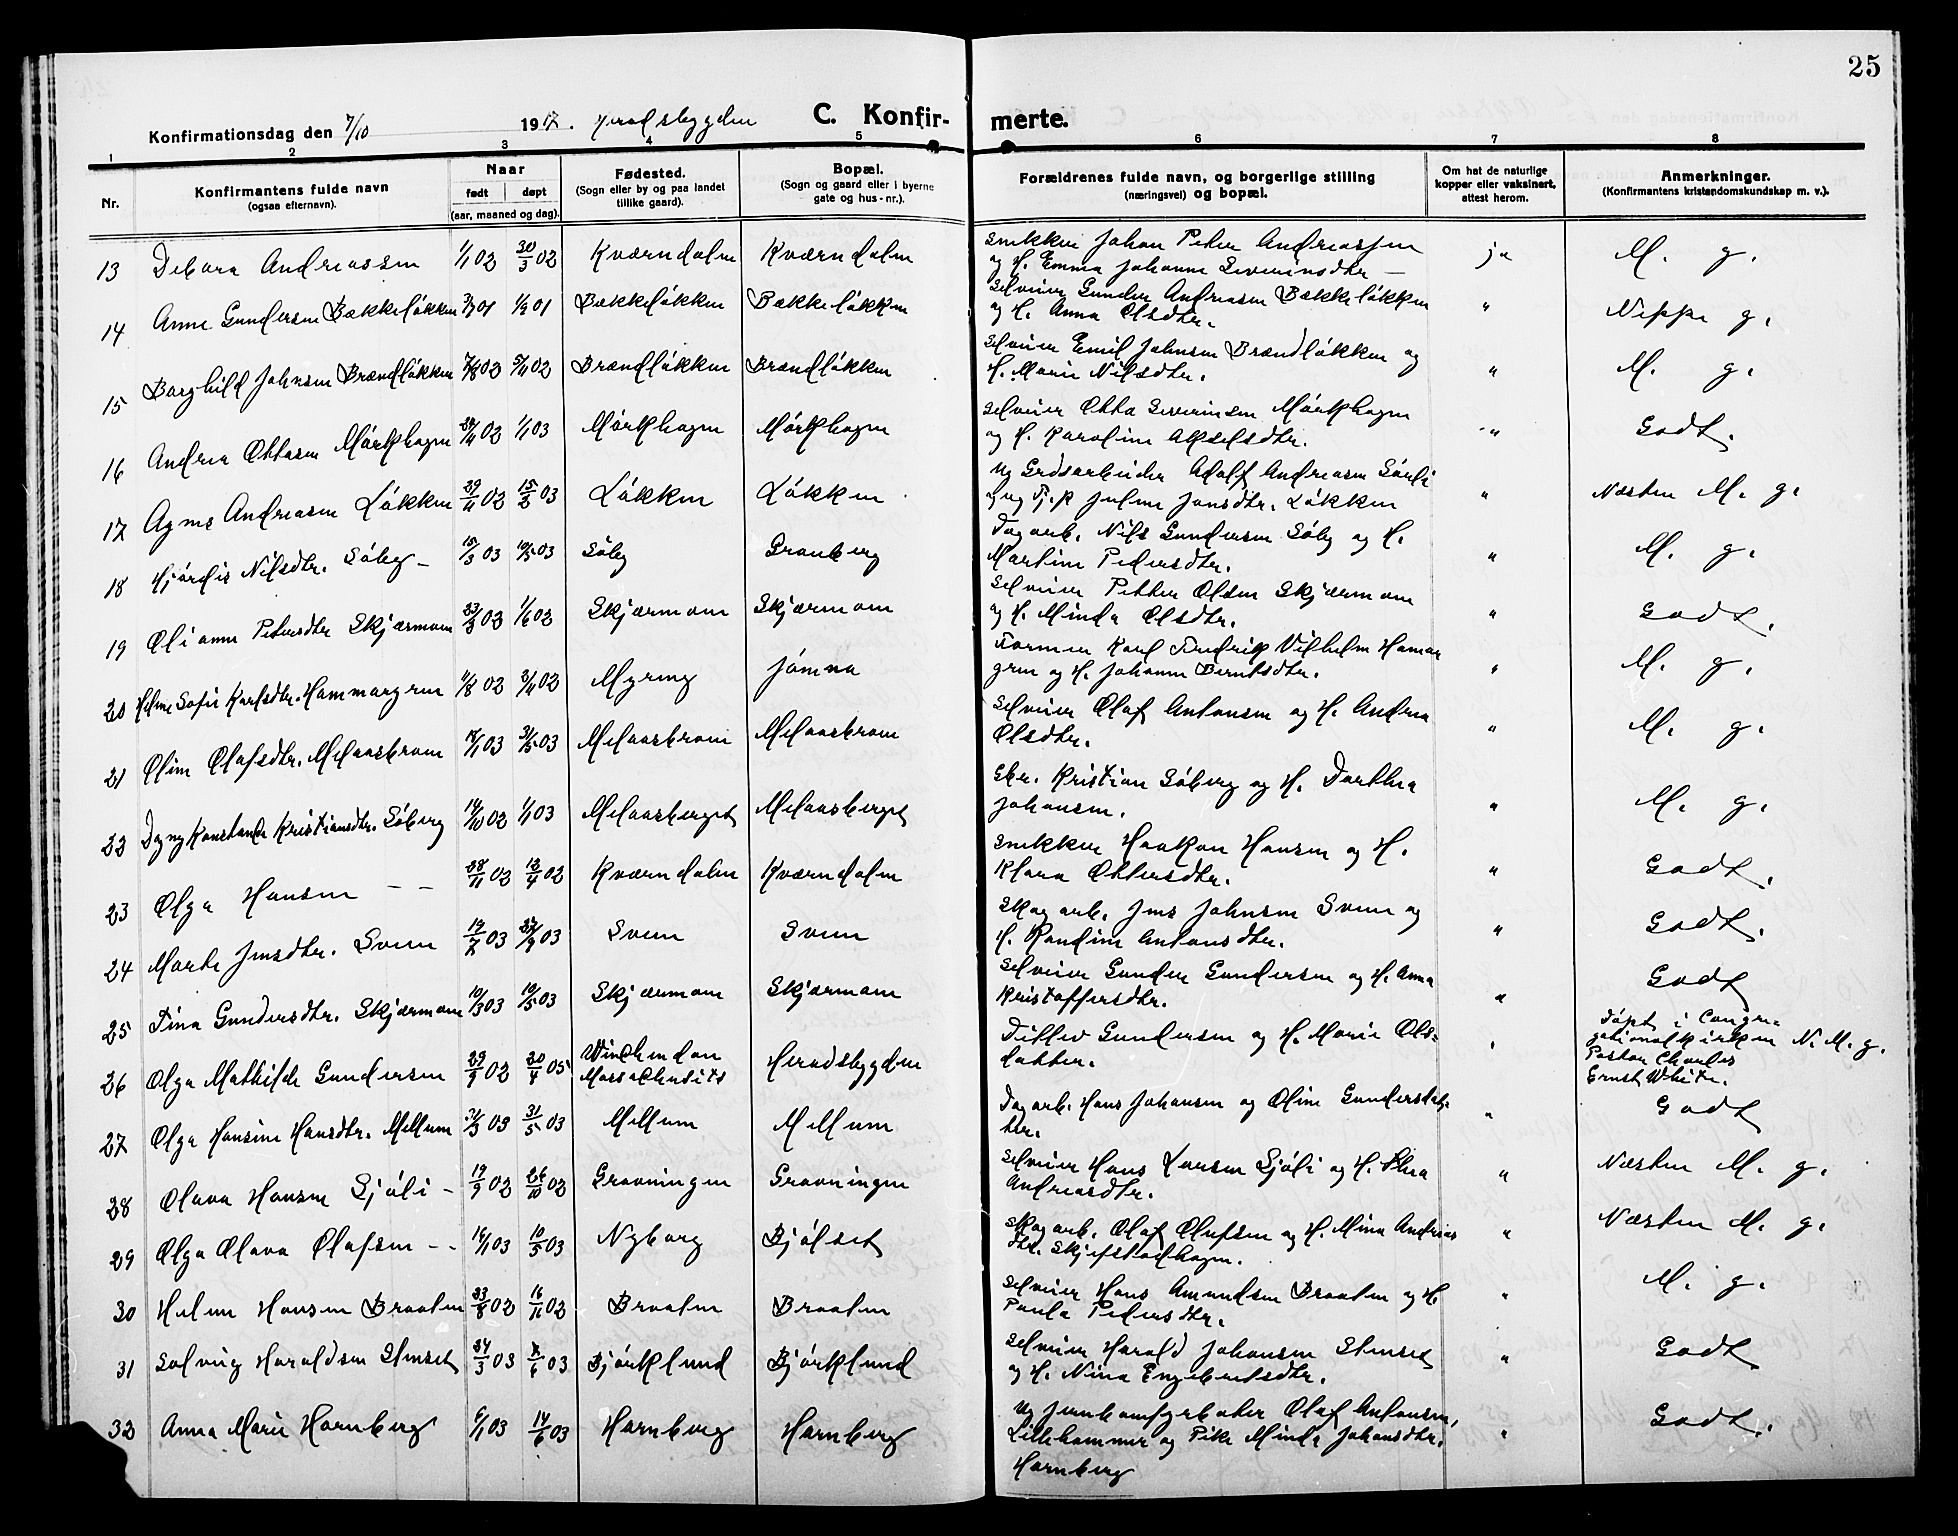 25
Konfirmationsdag den 7/10 1917. Heradsbygden C. Konfir- merte.
1 2 3 4 5 6 7 8
Nr. Konfirmantens fulde navn (ogsaa efternavn). Naar født døpt (aar, maaned og dag). Fødested. (Sogn eller by og paa landet tillike gaard). Bopæl. (Sogn og gaard eller i byerne gate og hus-nr.). Forældrenes fulde navn, og borgerlige stilling (næringsvei) og bopæl. Om hat de naturlige kopper eller vaksinert, attest herom. Anmerkninger. (Konfirmantens kristendomskundskap m. v.).
13 Debora Andreassen 1/1 02 30/3 02 Kværndalen Kværndalen Snekker Johan Peter Andreassen ja M. g.
og H. Emma Johanne Severinsdtr. —
14 Anne Gundersen Bækkeløkken 01 01 Bækkeløkken Bækkeløkken Selveier Gunder Andreasen Bækkeløkken " Neppe g.
og H. Anna Olsdtr.
15 Borghild Johnsen Brændløkken 7/8 02 02 Brændløkken Brændløkken Selveier Emil Johnsen Brændløkken og " M. g.
H. Marie Nilsdtr.
16 Andrea Ottosen Mørkhagen 02 1/1 03 Mørkhagen Mørkhagen Selveier Otto Severinsen Mørkhagen " Godt.
og H. Karoline Akselsdtr.
17 Agnes Andreasen Løkken 02 03 Løkken Løkken Ug Grdsarbeider Adolf Andreasen Sørli " Næsten M. g.
og ug Pike Juline Jonsdtr. Løkken
18 Hjørdis Nilsdtr. Søby - 15/3 03 10/5 03 Søby Granberg Dagarb. Nils Gundersen Søby og H. " M. g.
Martine Pedersdtr.
19 Olianne Petersdtr Skjærmoen 02 1/6 02 Skjærmoen Skjærmoen Selveier Petter Olsen Skjærmoen " Godt.
og H. Minda Olsdtr.
20 Helene Sofie Karlsdtr. Hammargren 02 02 Myring Jømna Former Karl Fredrik Vilhelm Hamar " M. g.
gren og H. Johanne Berntsdtr.
21 Oline Olafsdtr. Melaasbraaen 03 31/5 03 Melaasbraaen Melaasbraaen Selveier Olaf Antonsen og H. Andrea " M. g.
Olsdtr.
22 Dagny Konstanse Kristiansdtr. Søberg 14/10 02 1/1 03 Melaasberget Melaasberget Gbr. Kristian Søberg og H. Dorthea " M. g.
Johansen.
23 Olga Hansen — — 28/11 02 02 Kværndalen Kværndalen Snekker Haakon Hansen og H. " Godt.
Klara Ottersdtr.
24 Marte Jensdtr. Sveen 03 27/9 03 Sveen Sveen Skogarb. Jens Johnsen Sveen og " Godt.
H. Randine Antonsdtr.
25 Tina Gundersdtr. Skjærmoen 10/3 03 10/5 03 Skjærmoen Skjærmoen Selveier Gunder Gundersen og H. Anna " Godt
Kristoffersdtr.
26 Olga Mathilde Gundersen 29/9 02 20/4 05 Winchendon Massachusits Heradsbygden Ditlev Gundersen og H. Marie Ols= " Døpt i Congre=
datter. gationalkirken N. M. g.
Pastor Charles
Ernst White.
27 Olga Hansine Hansdtr. Mellum 03 31/5 03 Mellum Mellum Dagarb. Hans Johansen og Oline Gundersdat- " Godt
ter.
28 Olava Hansen Sjøli - 19/9 02 26/10 02 Gravningen Gravningen Selveier Hans Larsen Sjøli og H. Thea " Næsten M. g.
Andreasdtr.
29 Olga Olava Olafsen - - 14/1 03 10/5 03 Nyborg Bjølset Skogarb. Olaf Olufsen og H. Mina Andreas " Næsten M. g.
dtr. Skjefstadhagen.
30 Helene Hansen Braaten 23/8 02 16/11 02 Braaten Braaten Selveier Hans Amundsen Braaten og H. " M. g.
Paula Pedersdtr.
31 Solveig Haraldsen Stenset 24/3 03 03 Bjørklund Bjørklund Selveier Harald Johansen Stenset " Godt
og H. Nina Engebretsdtr.
32 Anna Marie Hornberg 6/1 03 14/6 03 Hornberg Hornberg Ug jernbanefyrbøter Olaf Antonsen, " Godt.
Lillehammer og Pike Minda Johansdtr.
Hornberg